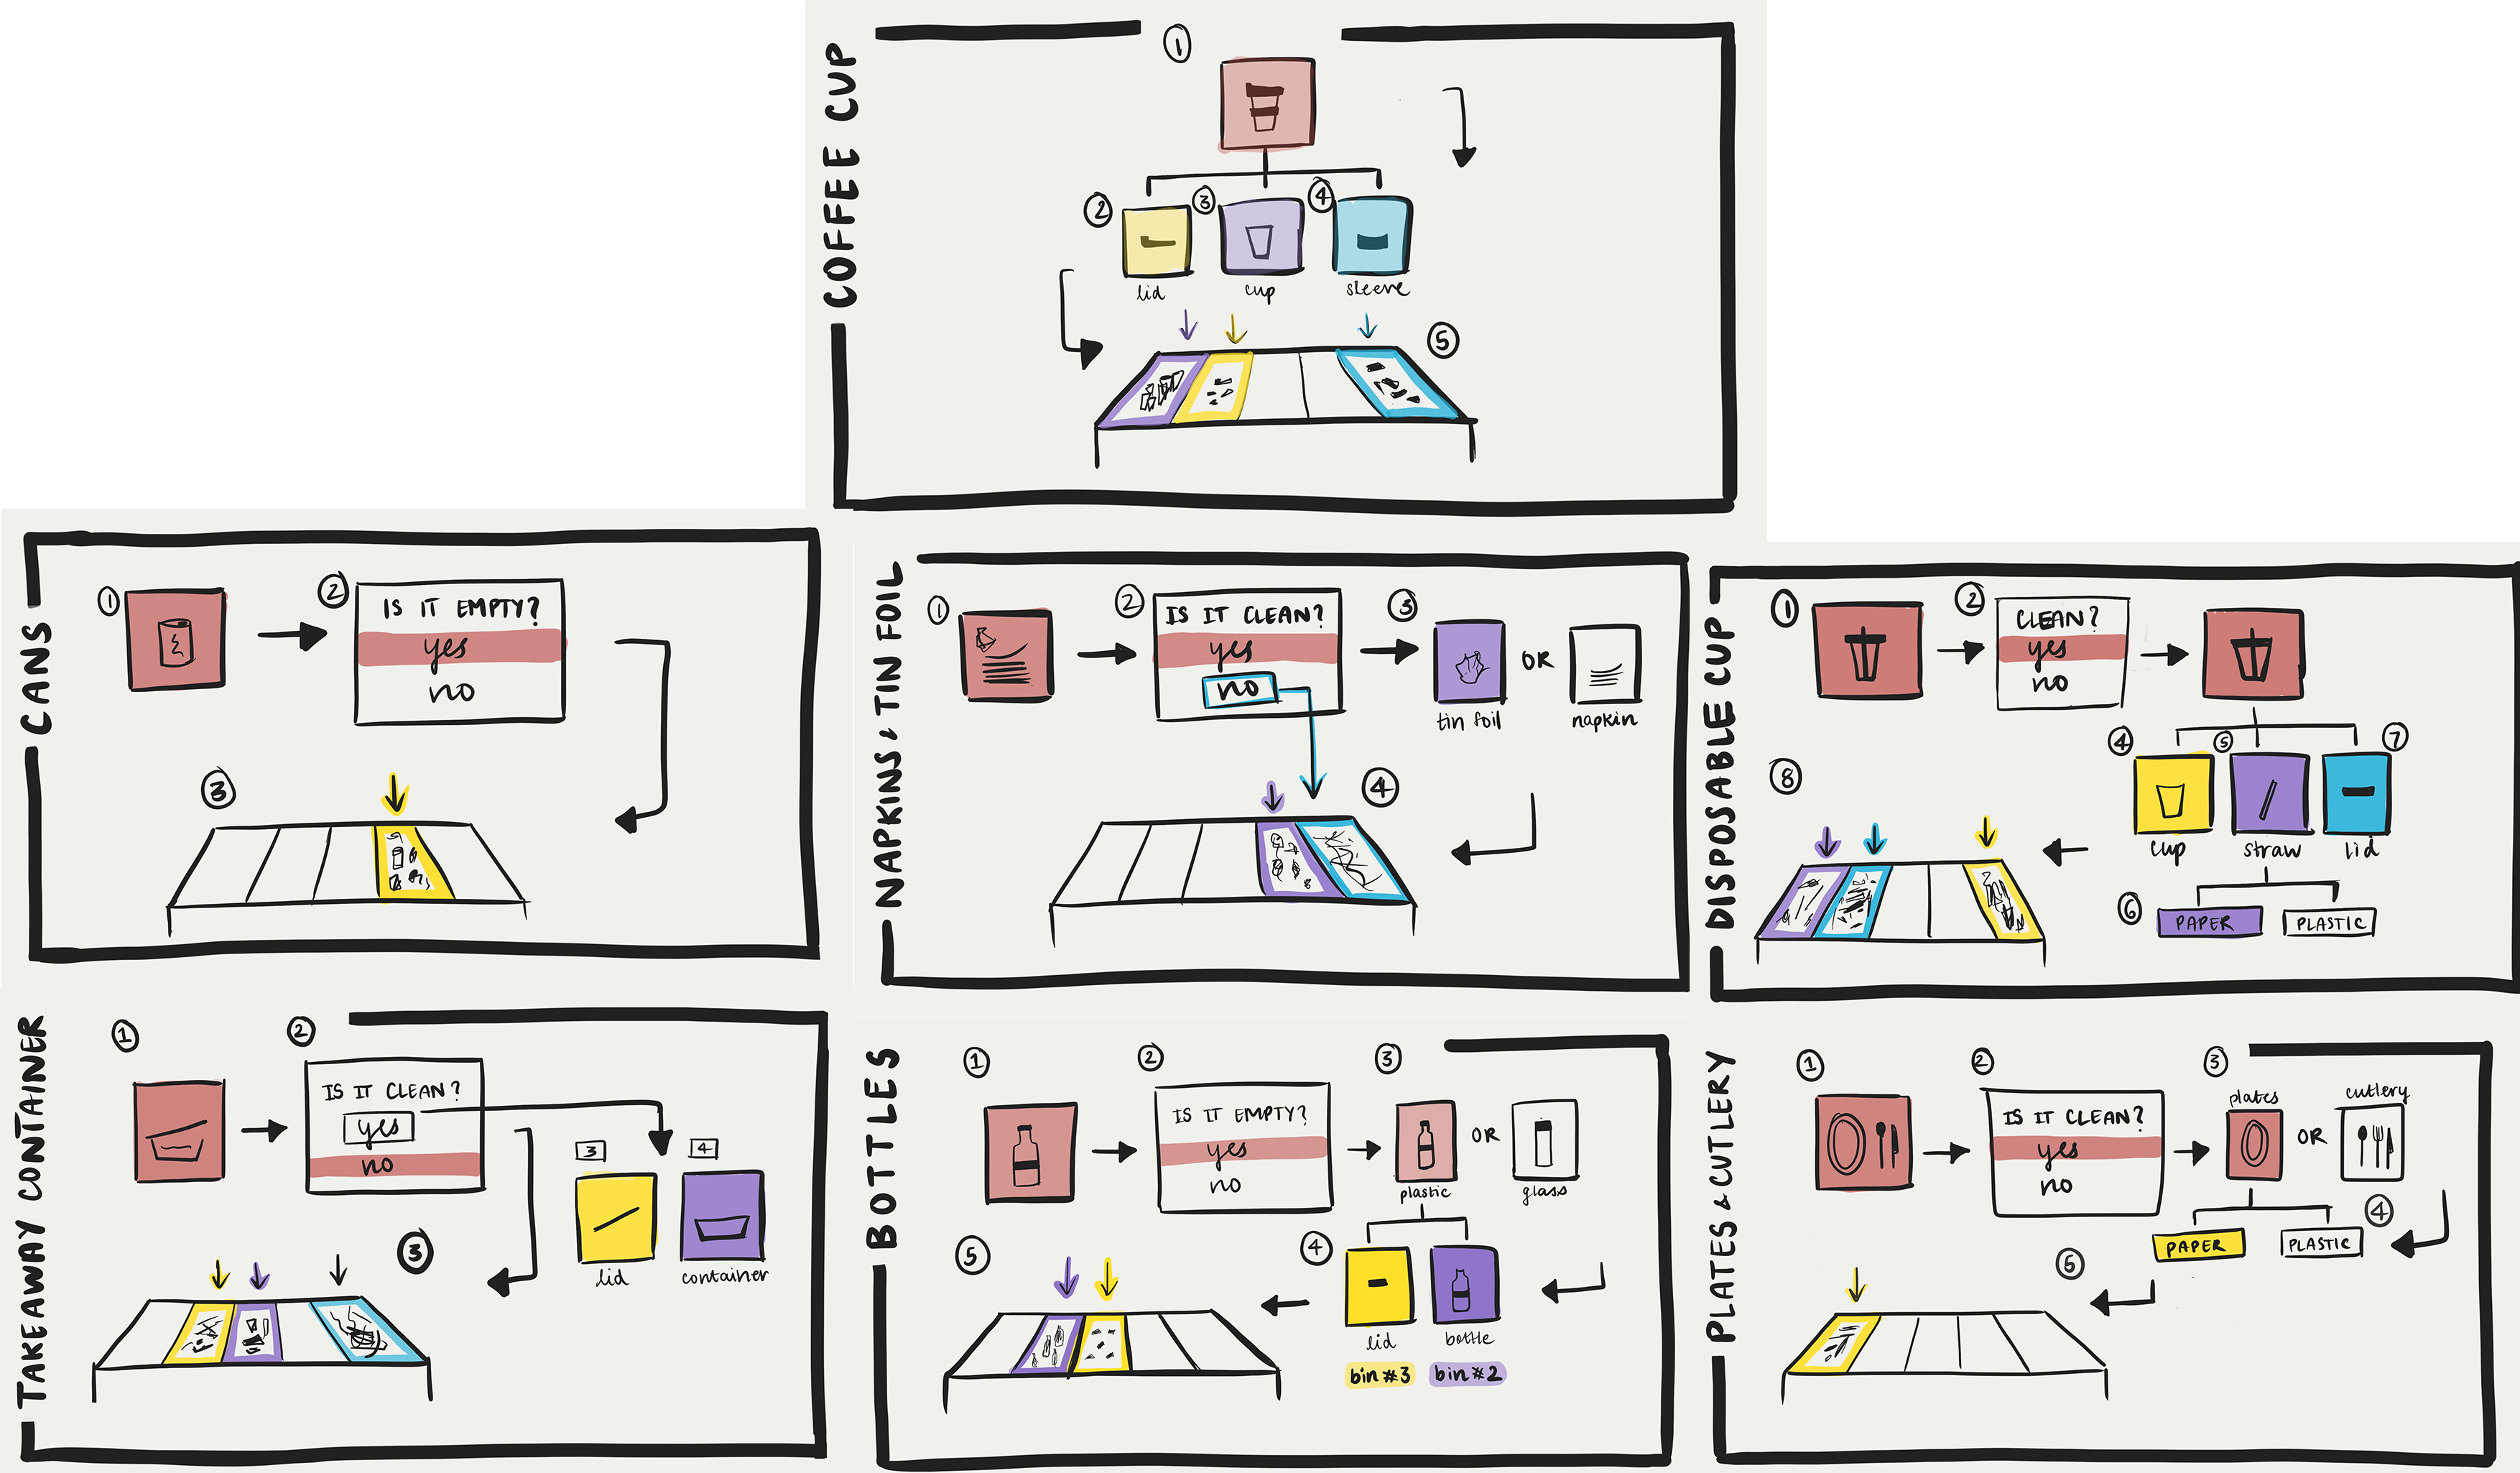 COFFEE CUP
1
2
3
4
lid
cup
sleeve
5
CANS
1
2
IS IT EMPTY?
yes
no
3
NAPKINS & TIN FOIL
1
2
IS IT CLEAN?
yes
no
3
OR
tin foil
napkin
4
DISPOSABLE CUP
1
2
CLEAN?
yes
no
4
5
7
cup
straw
lid
6
PAPER
PLASTIC
8
TAKEAWAY CONTAINER
1
2
IS IT CLEAN?
yes
no
3
4
lid
container
3
BOTTLES
1
2
IS IT EMPTY?
yes
no
3
OR
plastic
glass
4
lid
bottle
bin #3
bin #2
5
PLATES & CUTLERY
1
2
IS IT CLEAN?
yes
no
3
plates
OR
cutlery
4
PAPER
PLASTIC
5